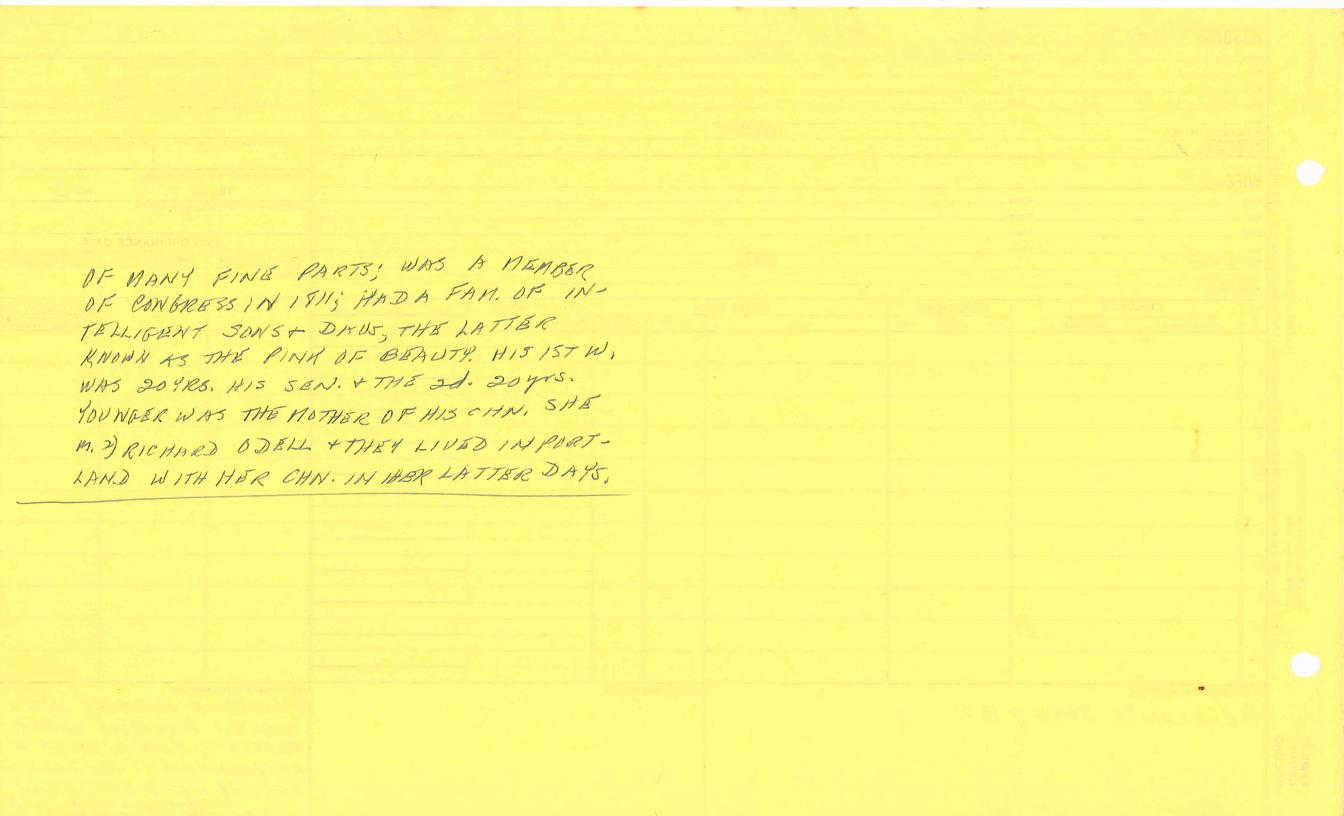 OF MANY FINE PARTS; WAS A MEMBER
OF CONGRESS IN 1811; HAD A FAM. OF IN-
TELLIGENT SONS + DAUS, THE LATTER
KNOWN AS THE PINK OF BEAUTY. HIS 1ST W.
WAS 20 YRS. HIS SEN. + THE 2d. 20 yrs.
YOUNGER WAS THE MOTHER OF HIS CHN. SHE
m. 2) RICHARD ODELL + THEY LIVED IN PORT-
LAND WITH HER CHN. IN HER LATTER DAYS.